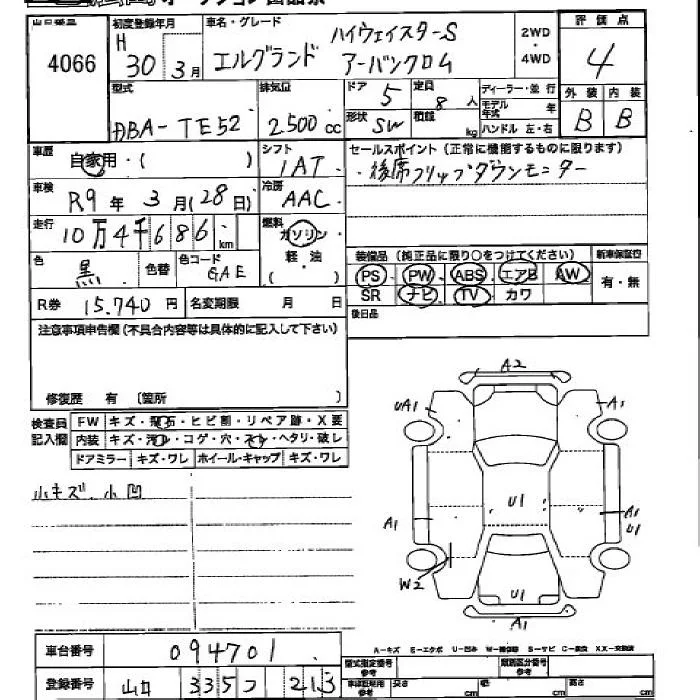 出品番号 初度登録年月 車名・グレード 評価点
4066 H 30 3月 エルグランド ハイウェイスターS アーバンクロム 2WD・4WD 4
型式 排気量 ドア 5 定員 8人 ディーラー・並行 外装 内装
DBA-TE52 2500cc 形状 SW 積載 kg モデル年式 年 ハンドル 左・右 B B
車歴 自家用・( ) シフト IAT セールスポイント(正常に機能するものに限ります)
・後席フリップダウンモニター
車検 R9年3月(28日) 冷房 AAC
走行 10万4千686km 燃料 ガソリン 軽・油 ( )
装備品(純正品に限り○をつけてください) 新車保証書
色 黒 色替 色コード GAE PS PW ABS エアB AW 有・無
R券 15.740円 名変期限 月 日 SR ナビ TV カワ
注意事項申告欄(不具合内容等は具体的に記入して下さい) 後日品
修復歴 有 〔箇所 〕
検査員記入欄 FW キズ・飛石・ヒビ割・リペア跡・X要
内装 キズ・汚れ・コゲ・穴・スレ・ヘタリ・破レ
ドアミラー キズ・ワレ ホイール・キャップ キズ・ワレ
小キズ、小凹
A2
UA1 A1
U1
A1 A1 U1
W2
U1
A1
A-キズ E-エクボ U-凹み W-補修跡 S-サビ C-腐食 XX-交換済
車台番号 094701
型式指定番号 類別区分番号
登録番号 山口 335 つ 213
長さ cm 幅 cm 高さ cm